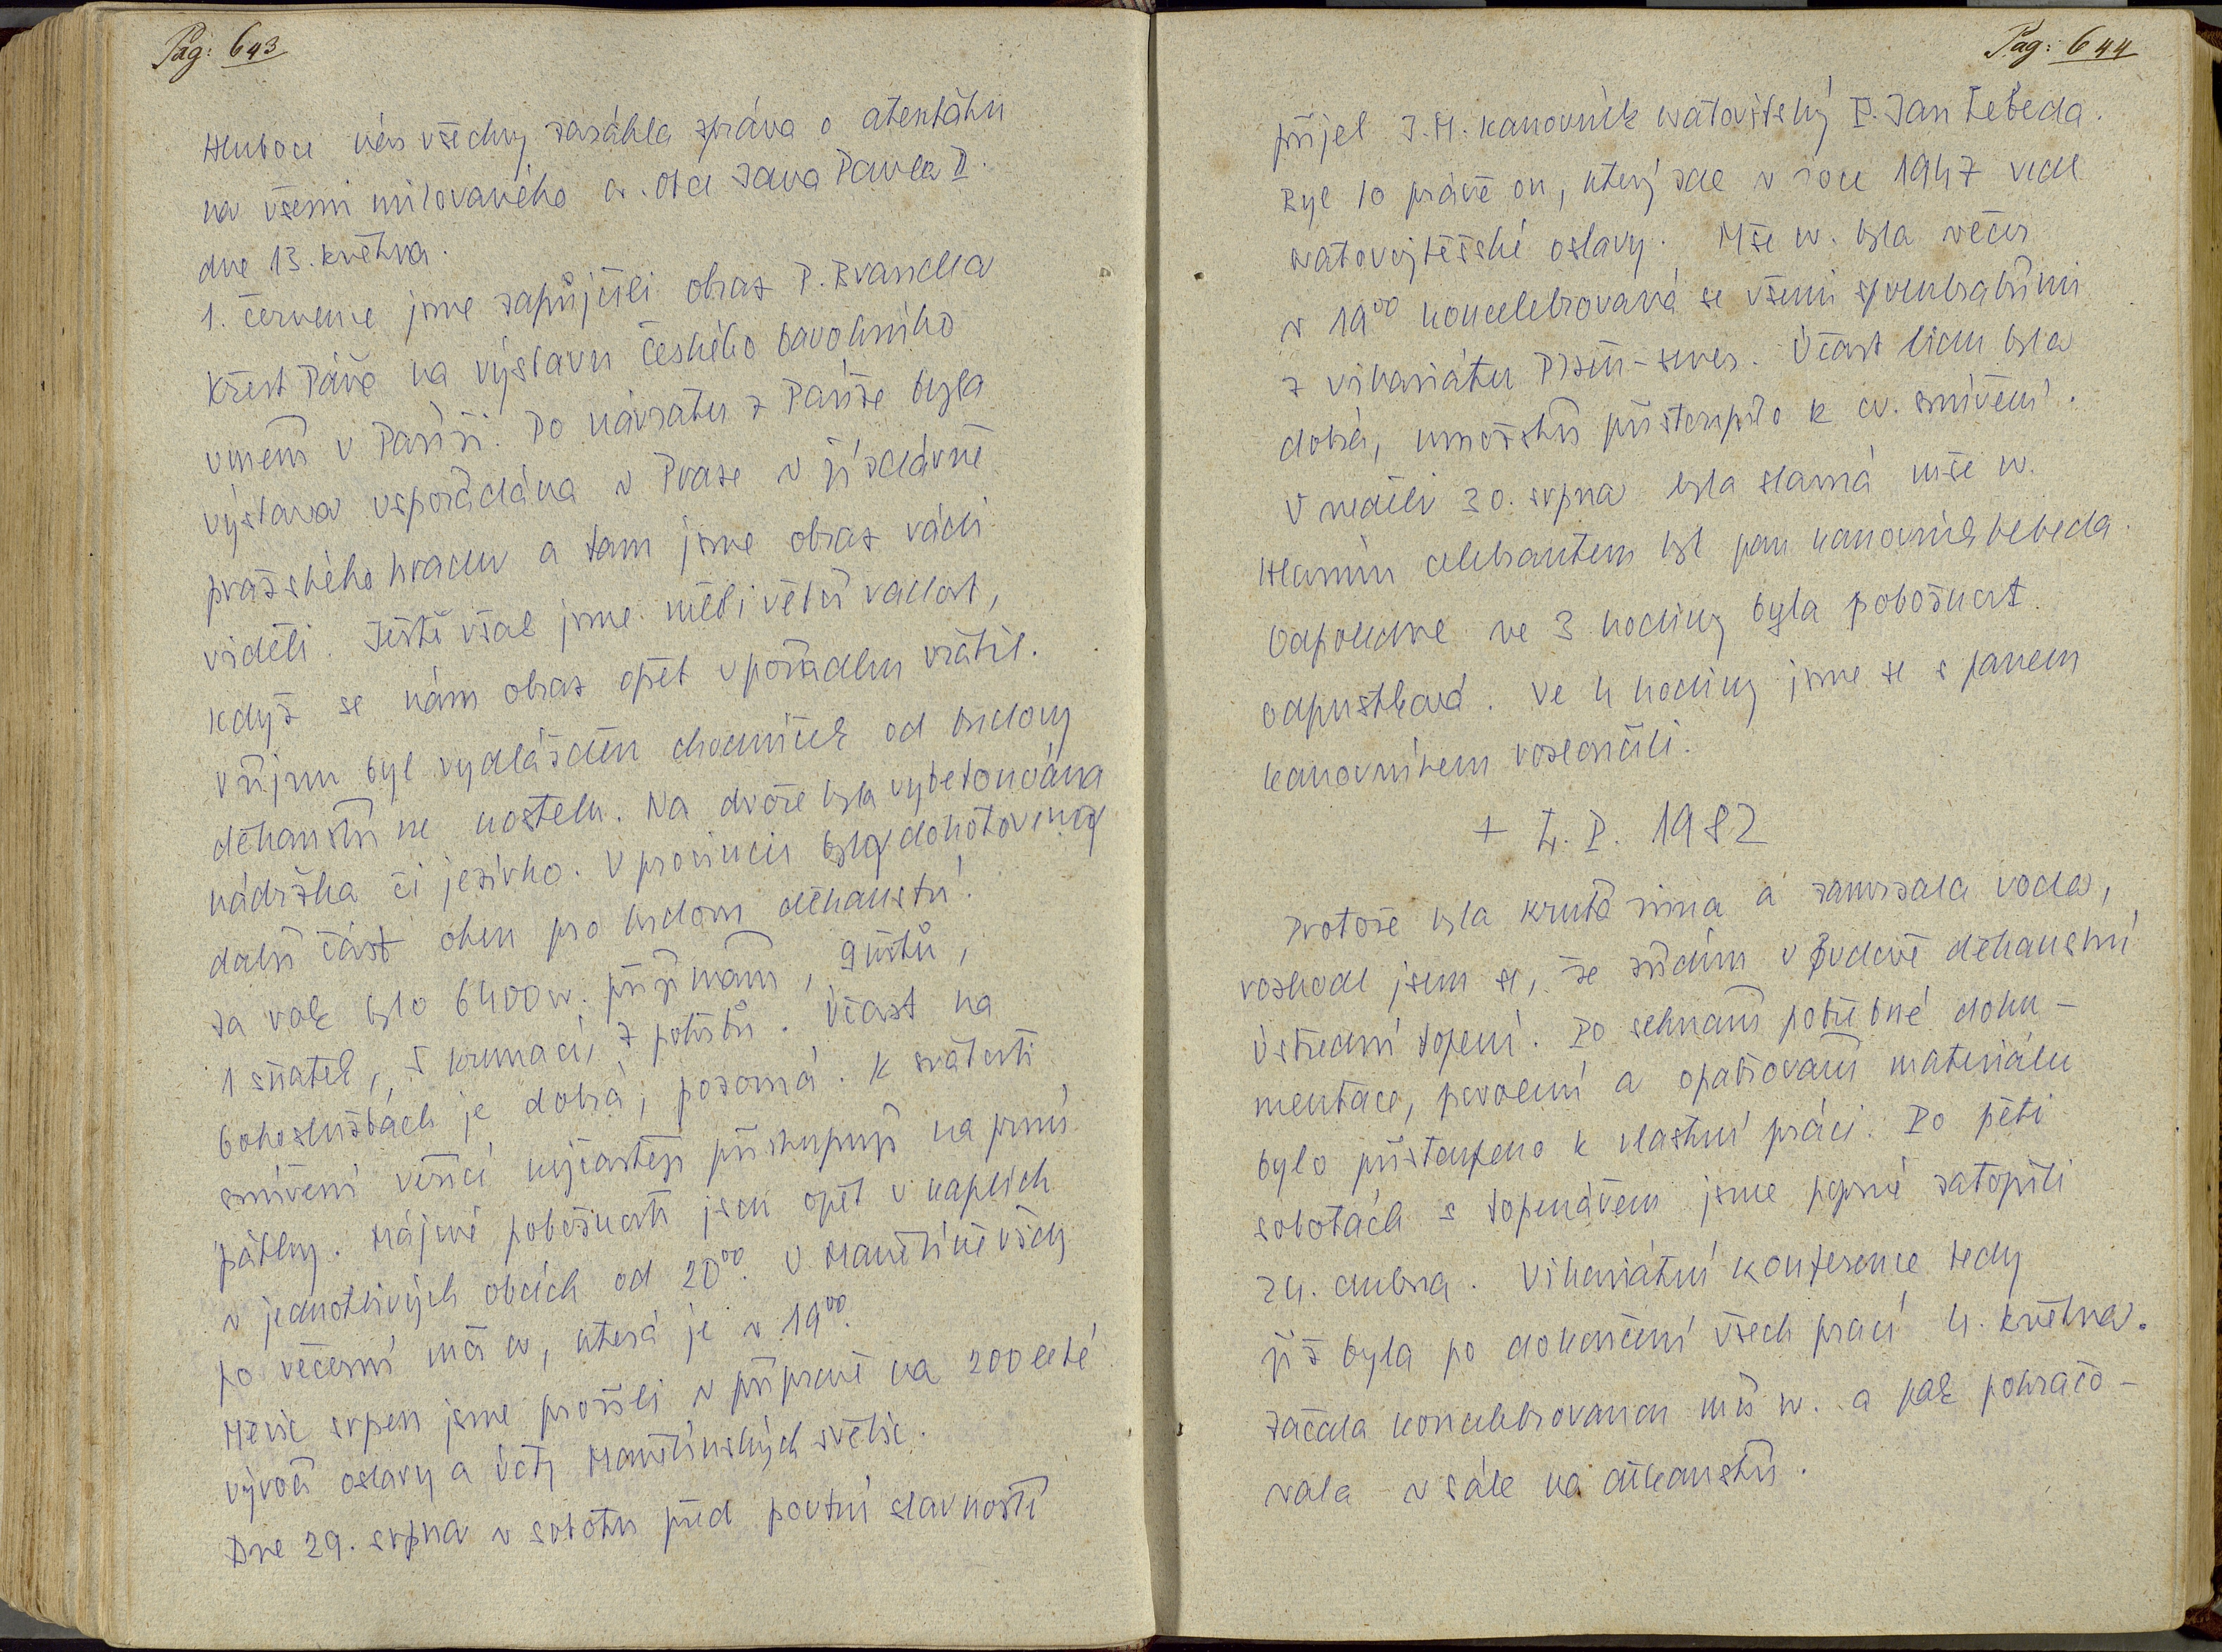 Pag: 643
Hluboce nás všechny zasáhla zpráva o atentátu
na všemi milovaného sv. Otce Jana Pavla II.
dne 13. května.
1. července jsme zapůjčili obraz P. Brandla
Křest Páně na výstavu českého barokního
umění v Paříži. Po návratu z Paříže byla
výstava uspořádána v Praze v jízdárně
pražského hradu a tam jsme obraz rádi
viděli. Ještě však jsme měli větší radost,
když se nám obraz opět v pořádku vrátil.
V říjnu byl vydlážděn chodníček od budovy
děkanství ke kostelu. Na dvoře byla vybetonována
nádržka či jezírko. V prosinci byla dohotovena
další část oken pro budovu děkanství.
Za rok bylo 6400 sv. přijímání, 9 křtů,
1 sňatek, 5 kremací, 7 pohřbů. Účast na
bohoslužbách je dobrá, pozorná. K svátosti
smíření věřící nejčastěji přistupují na první
pátky. Májové pobožnosti jsou opět v kaplích
v jednotlivých obcích od 20⁰⁰. V Manětíně vždy
po večerní mši sv, která je v 19⁰⁰.
Měsíc srpen jsme prožili v přípravě na 200 leté
výročí oslavy a úcty Manětínských světic.
Dne 29. srpna v sobotu před poutní slavností
Pag: 644
přijel J.M. kanovník svatovítský P. Jan Lebeda.
Byl to právě on, který zde v roce 1947 vedl
svatovojtěšské oslavy. Mše sv. byla večer
v 19⁰⁰ koncelebrovaná se všemi spolubratřími
z vikariátu Plzeň-sever. Účast lidu byla
dobrá, množství přistoupilo k sv. smíření.
V neděli 30. srpna byla slavná mše sv.
Hlavním celebrantem byl pan kanovník Lebeda.
Odpoledne ve 3 hodiny byla pobožnost
odpustková. Ve 4 hodiny jsme se s panem
kanovníkem rozloučili.
+ L. P. 1982
Protože byla krutá zima a zamrzala voda,
rozhodl jsem se, že zřídím v budově děkanství
ústřední topení. Po sehnání potřebné doku-
mentace, povolení a opatřování materiálu
bylo přistoupeno k vlastní práci. Po pěti
sobotách s topenářem jsme poprvé zatopili
24. dubna. Vikariátní konference tedy
již byla po dokončení všech prací 4. května.
Začala koncelebrovanou mší sv. a pak pokračo-
vala v sále na děkanství.